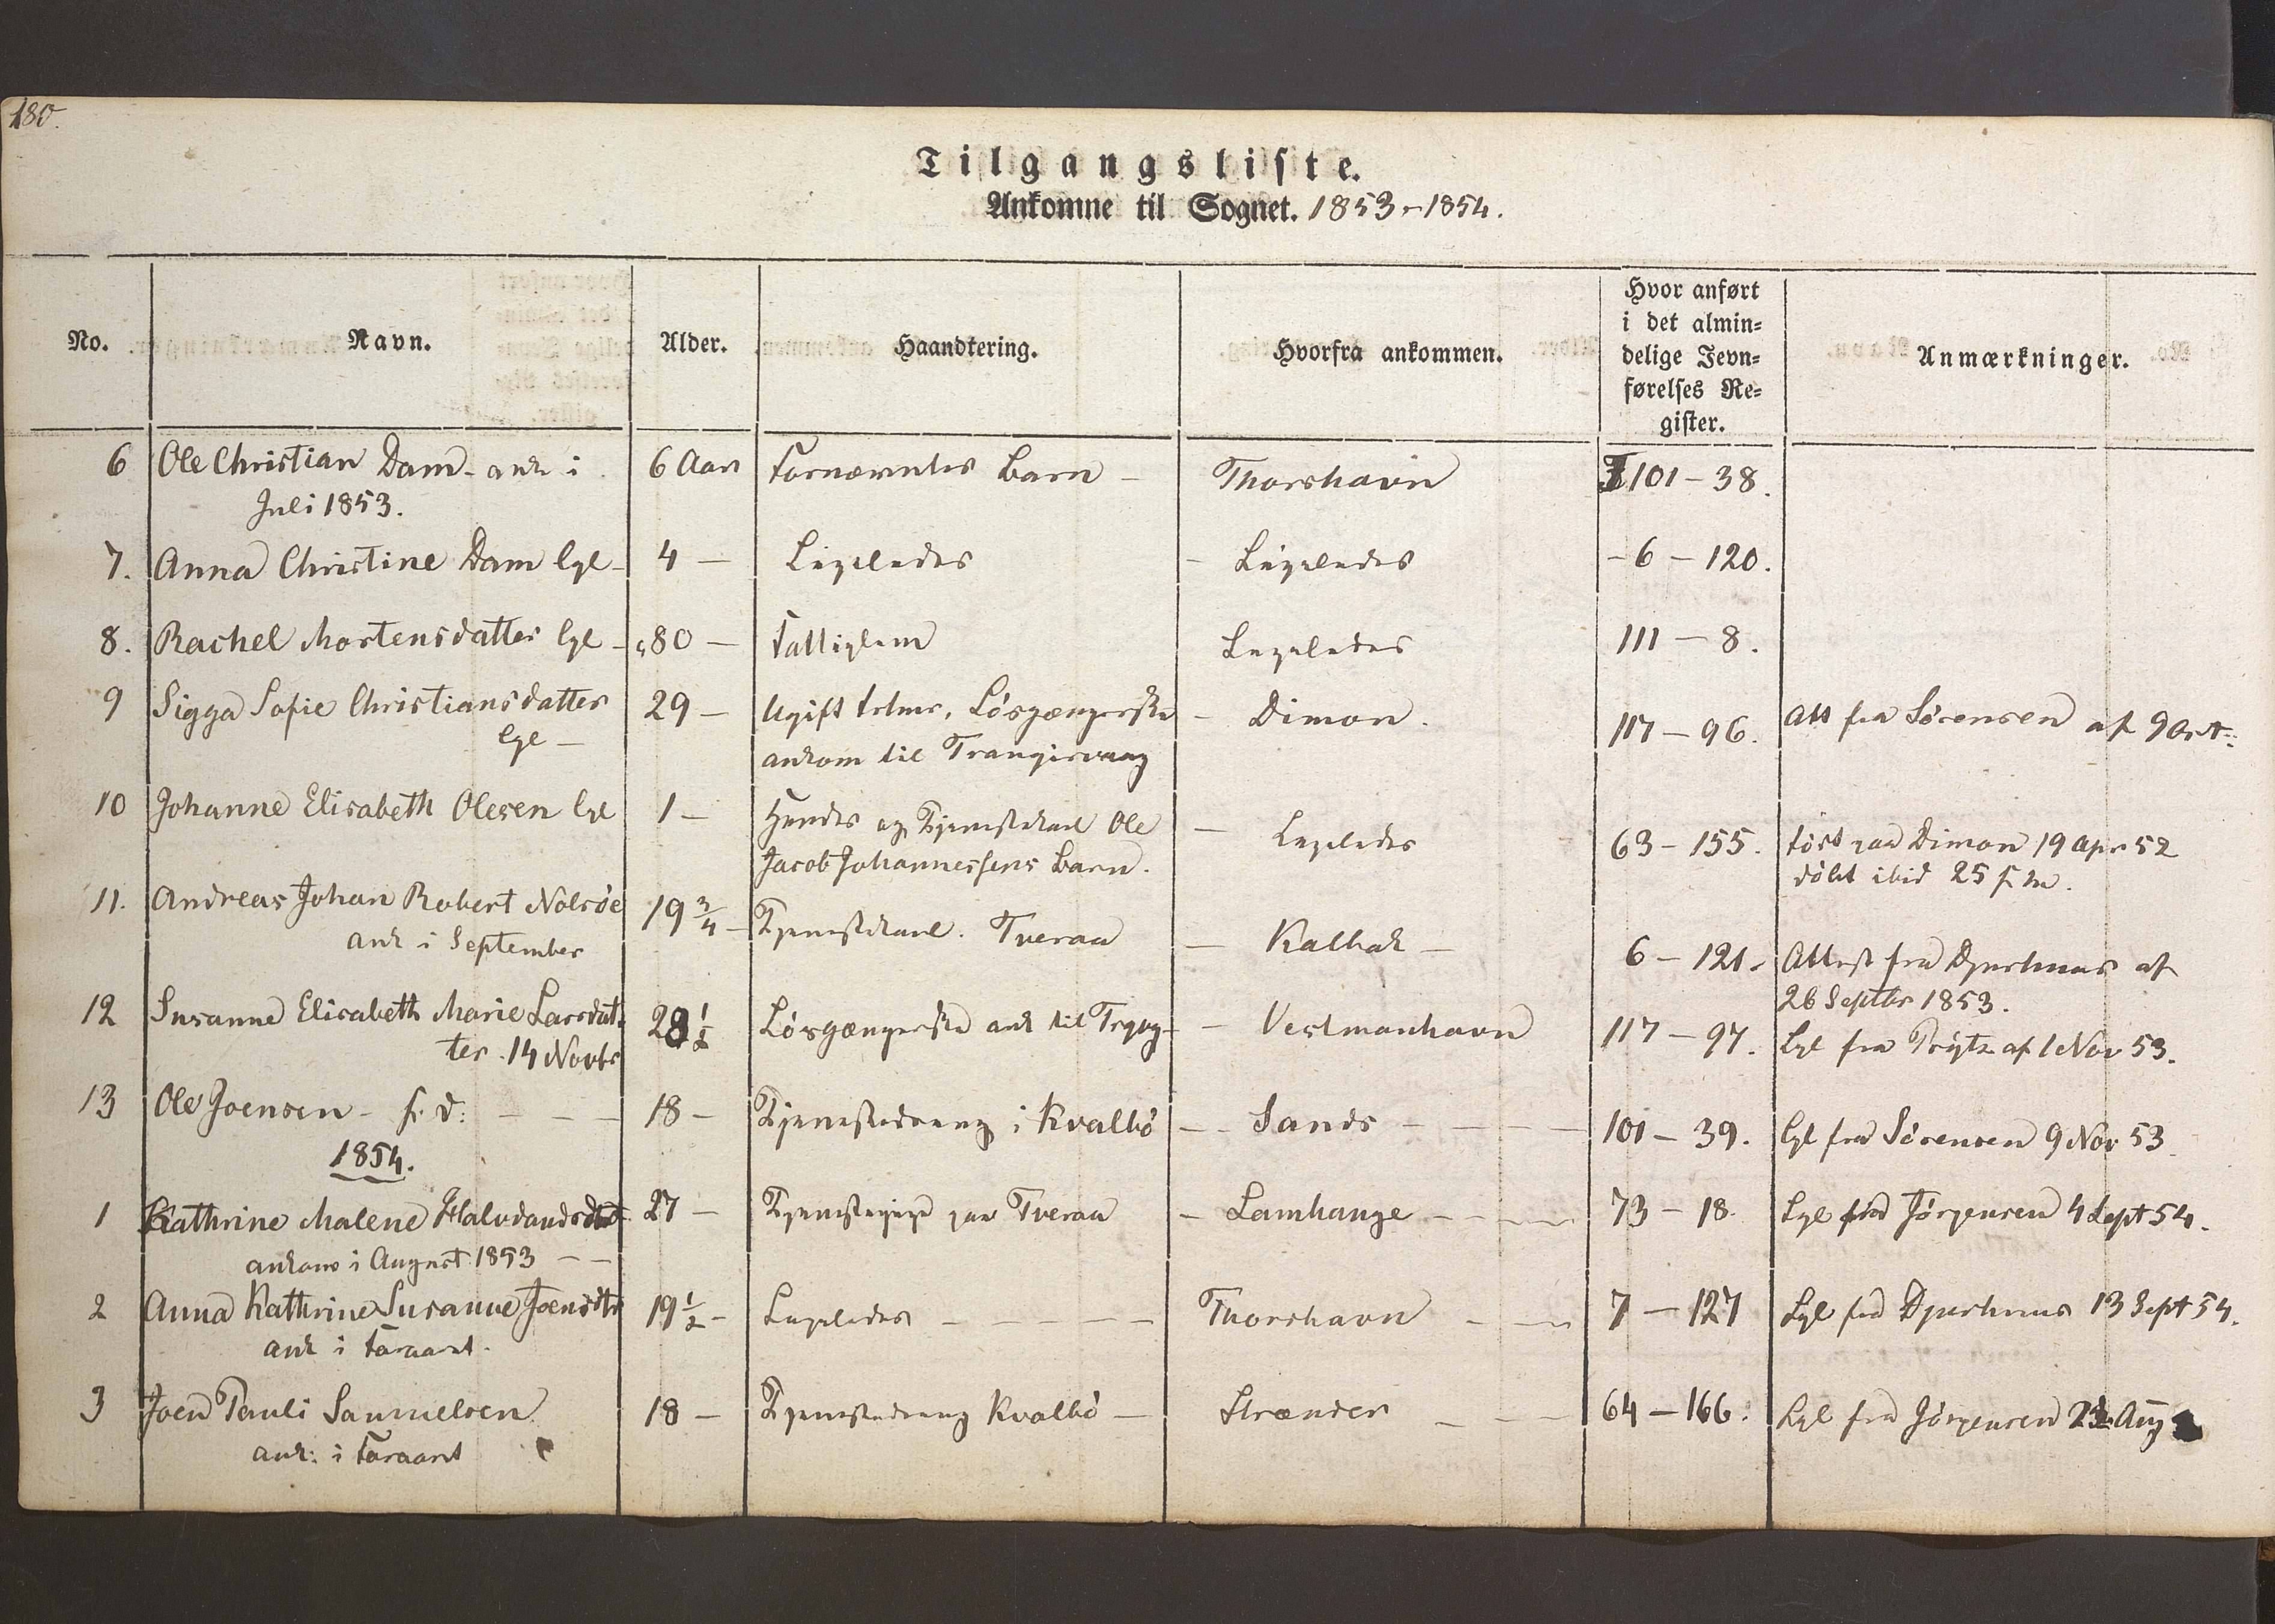 180.
Tilgangsliste.
Ankomne til Sognet. 1853-1854.
No. Navn. Alder. Haandtering. Hvorfra ankommen. Hvor anført i det almindelige Jevnførelses Register. Anmærkninger.
6 Ole Christian Dam - ank i 6 Aar Fornævntes Barn - Thorshavn 101-38.
Juli 1853.
7. Anna Christine Dam lgl - 4 - Ligeledes - Ligeledes - 6 - 120.
8. Rachel Mortensdatter lgl - 80 - Fattiglem Ligeledes 111 - 8.
9 Sigga Sofie Christiansdatter 29 - Ugift Løsgængerske - Dimon. 117 - 96. Att fra Sørensen af 9 Oct:
lgl - ankom til Trangisvaag
10 Johanne Elisabeth Olesen lgl 1 - Hendes og Tjenestekarl Ole - Ligeledes 63 - 155. født paa Dimon 19 Apr 52
Jacob Johannessens Barn. døbt ibid 25 s. M.
11. Andreas Johan Robert Nolsøe 19 3/4 - Tjenestekarl. Tveraa - Kalbak - 6 - 121. Attest fra Djurhuus af
ank i September 26 Septbr 1853.
12 Susanne Elisabeth Marie Larsdat- 28 1/2 Løsgængerske ank til - Vestmanhavn 117 - 97. Lgl fra Prytz af 1 Nov 53.
ter. 14 Novbr
13 Ole Joensen - s. d: - - - 18 - Tjenestedreng i Kvalbø - Sands - - - 101 - 39. lgl fra Sørensen 9 Nov 53
1854.
1 Kathrine Malene Halvdansdat 27 - Tjenestepige paa Tveraa - Lamhauge - - - 73 - 18. Lgl fra Jørgensen 4 Sept 54.
ankom i August 1853 - -
2 Anna Kathrine Susanne Joensdtr 19 1/2 - Ligeledes - - - - - Thorshavn - - 7 - 127 Lgl fra Djurhuus 13 Sept 54.
ank i Foraaret.
3 Joen Pauli Samuelsen 18 - Tjenestedreng Kvalbø - Strænder - - - 64 - 166. Lgl fra Jørgensen Aug
ank: i Foraaret